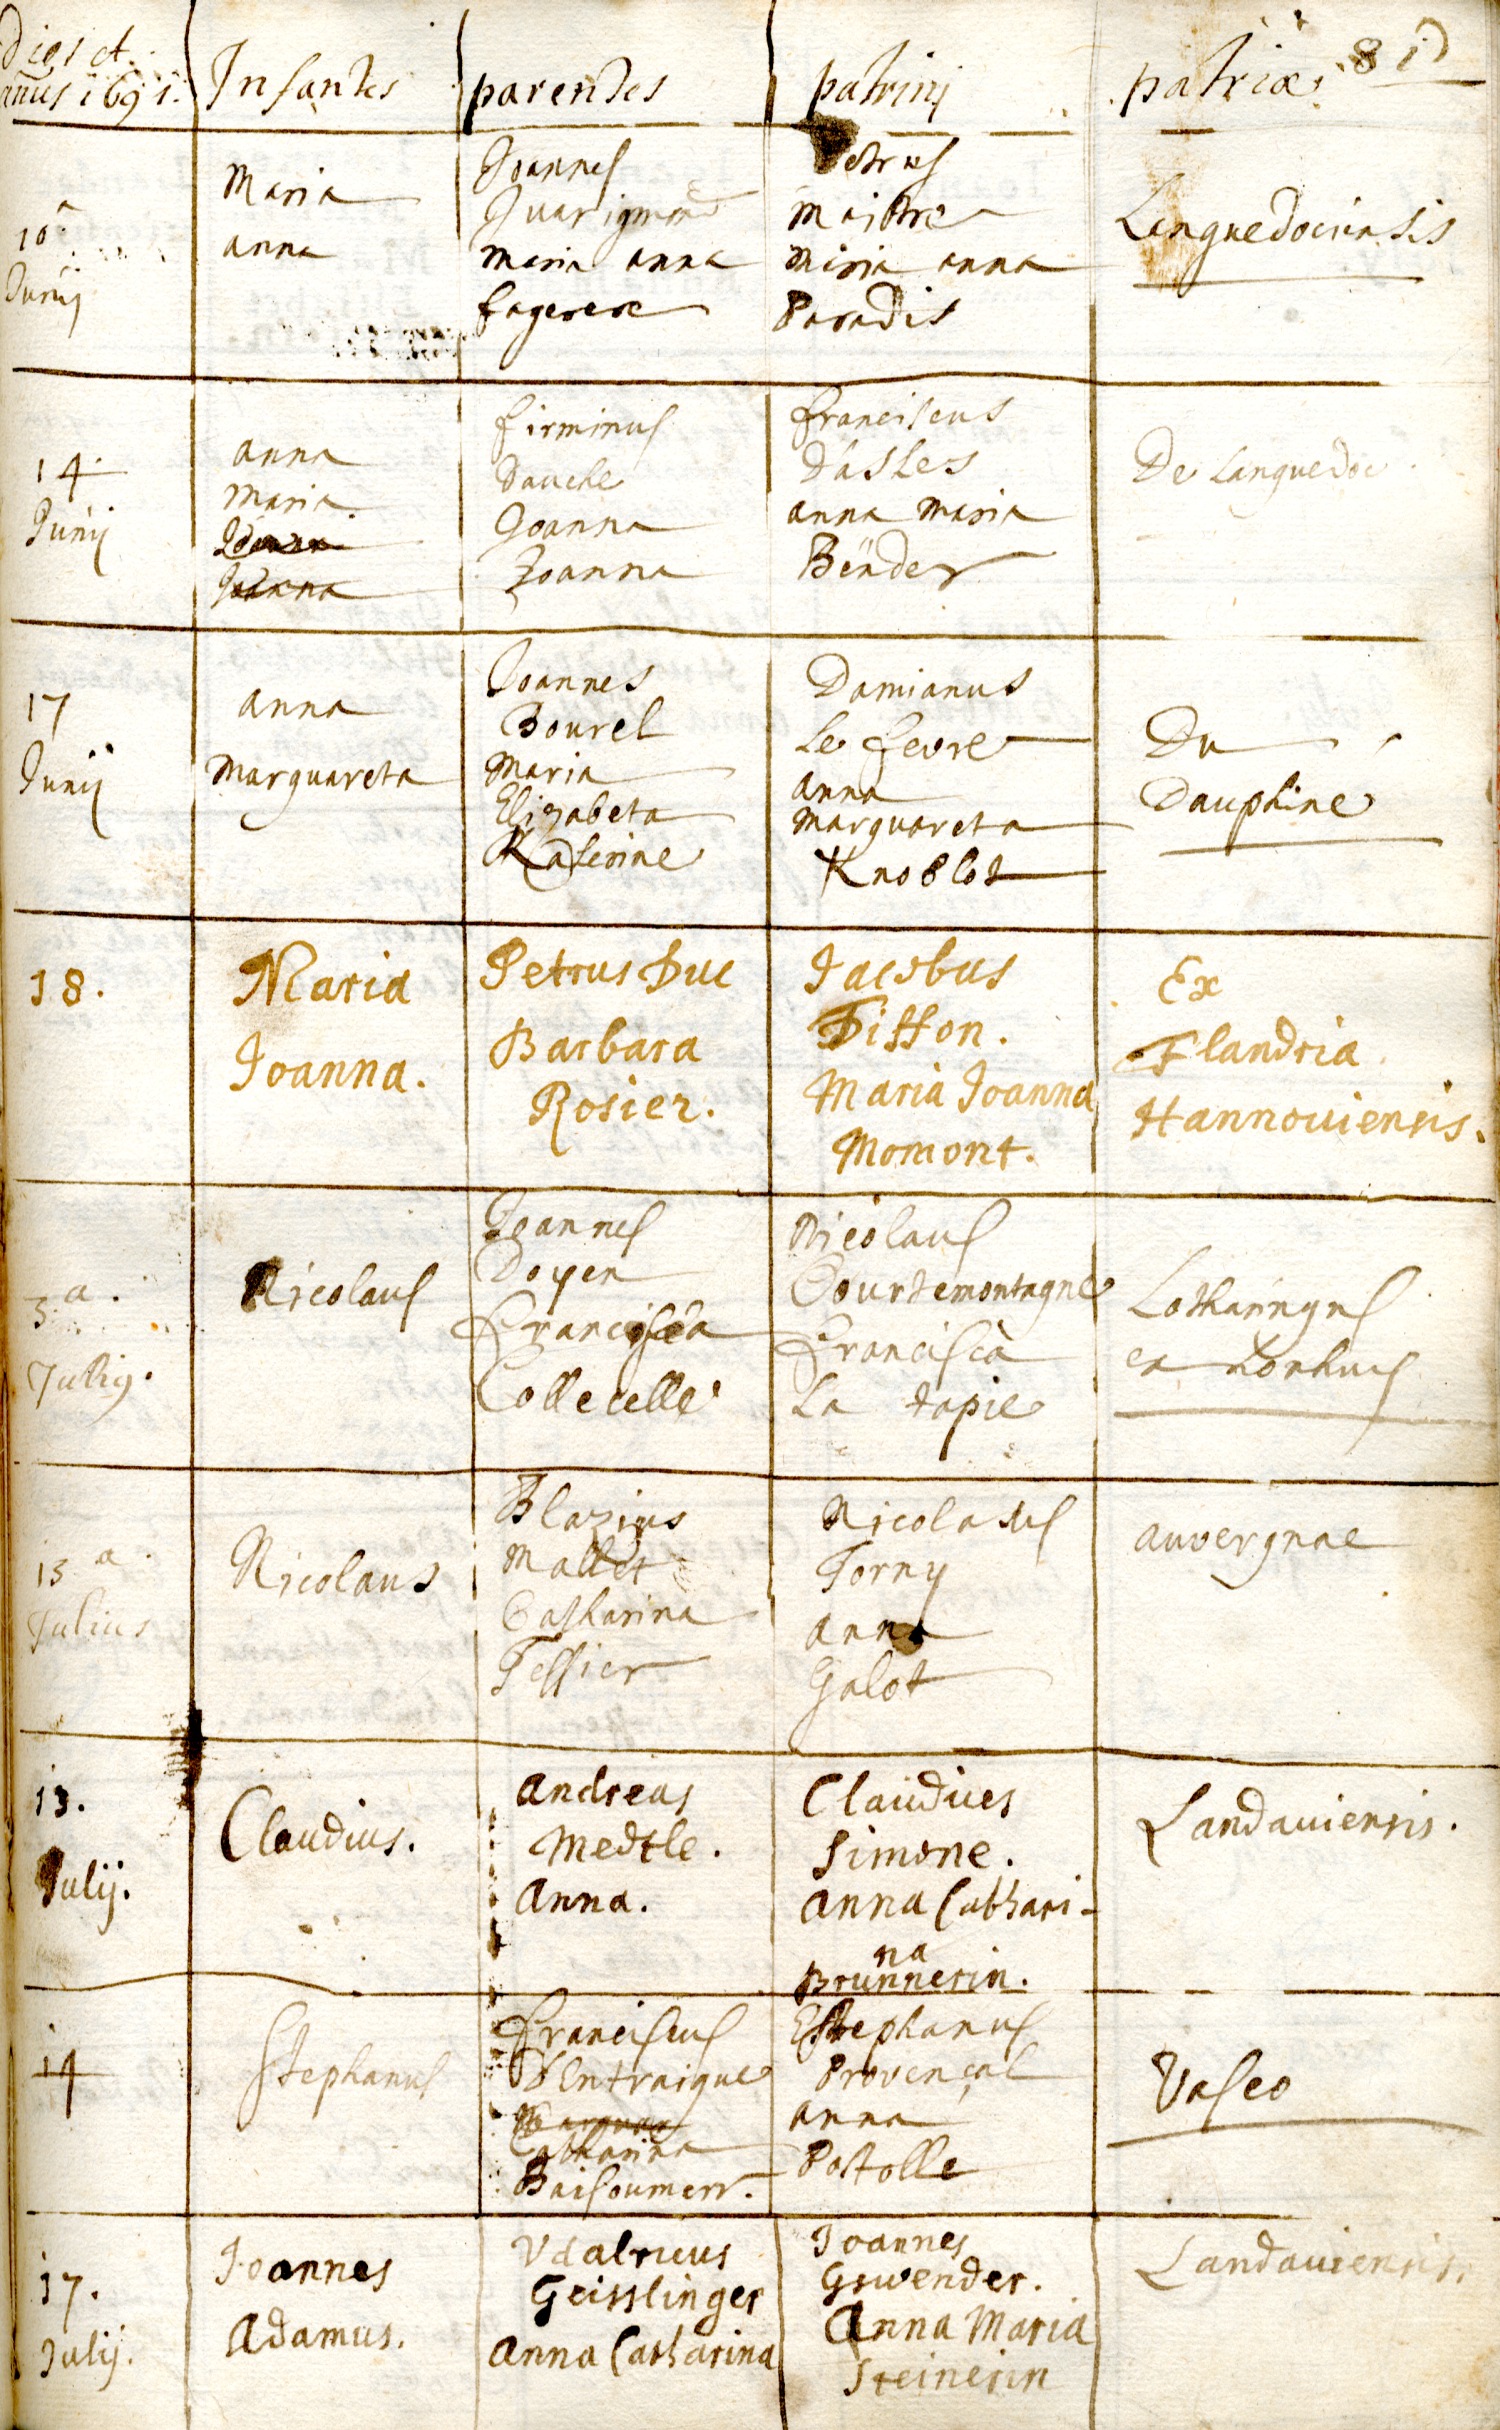 Dies et
añus 1691.
Infantes
parentes
patrinj
patriæ
81
10a
Junij
Maria
anna
Joannes
Maria anna
fagerere
Petrus
Maistre
Maria anna
Paradis
Languedociensis
14
Junij
anna
Maria
Joanna
firminus
Dauche
Joanna
Joanna
franciscus
Dasles
anna Maria
Bënder
De Languedoc
17
Junij
anna
Marguareta
Joannes
Bourel
Maria
Elizabeta
Katerine
Damianus
Le fevre
anna
Marguareta
Knoblot
Du
Dauphine
18.
Maria
Joanna.
Petrus Duc
Barbara
Rosier.
Jacobus
Tisson.
Maria Joanna
Momont.
Ex
Flandria
Hannoviensis.
3.a.
Julij.
Nicolaus
Joannes
Doyen
Francisca
Collecelle
Nicolaus
Courtemontagne
Francisca
La tapie
Lotharingus
13a.
Julius
Nicolaus
Blazius
Mallet
Catharina
Tessier
Nicolaus
Torny
anna
Galot
auvergnae
13.
Julij.
Claudius.
Andreas
Medtle.
Anna.
Claudius
Simone.
Anna Cathari-
na
Brunnerin.
Landaviensis.
14
Stephanus
Franciscus
D'Entraigue
Catharina
Baisoumerr.
EStephanus
Provençal
anna
Postolle
Vasco
17.
Julij.
Joannes
Adamus.
Vdalricus
Geisslinger
Anna Catharina
Joannes
Gswender.
Anna Maria
Steinerin
Landaviensis.